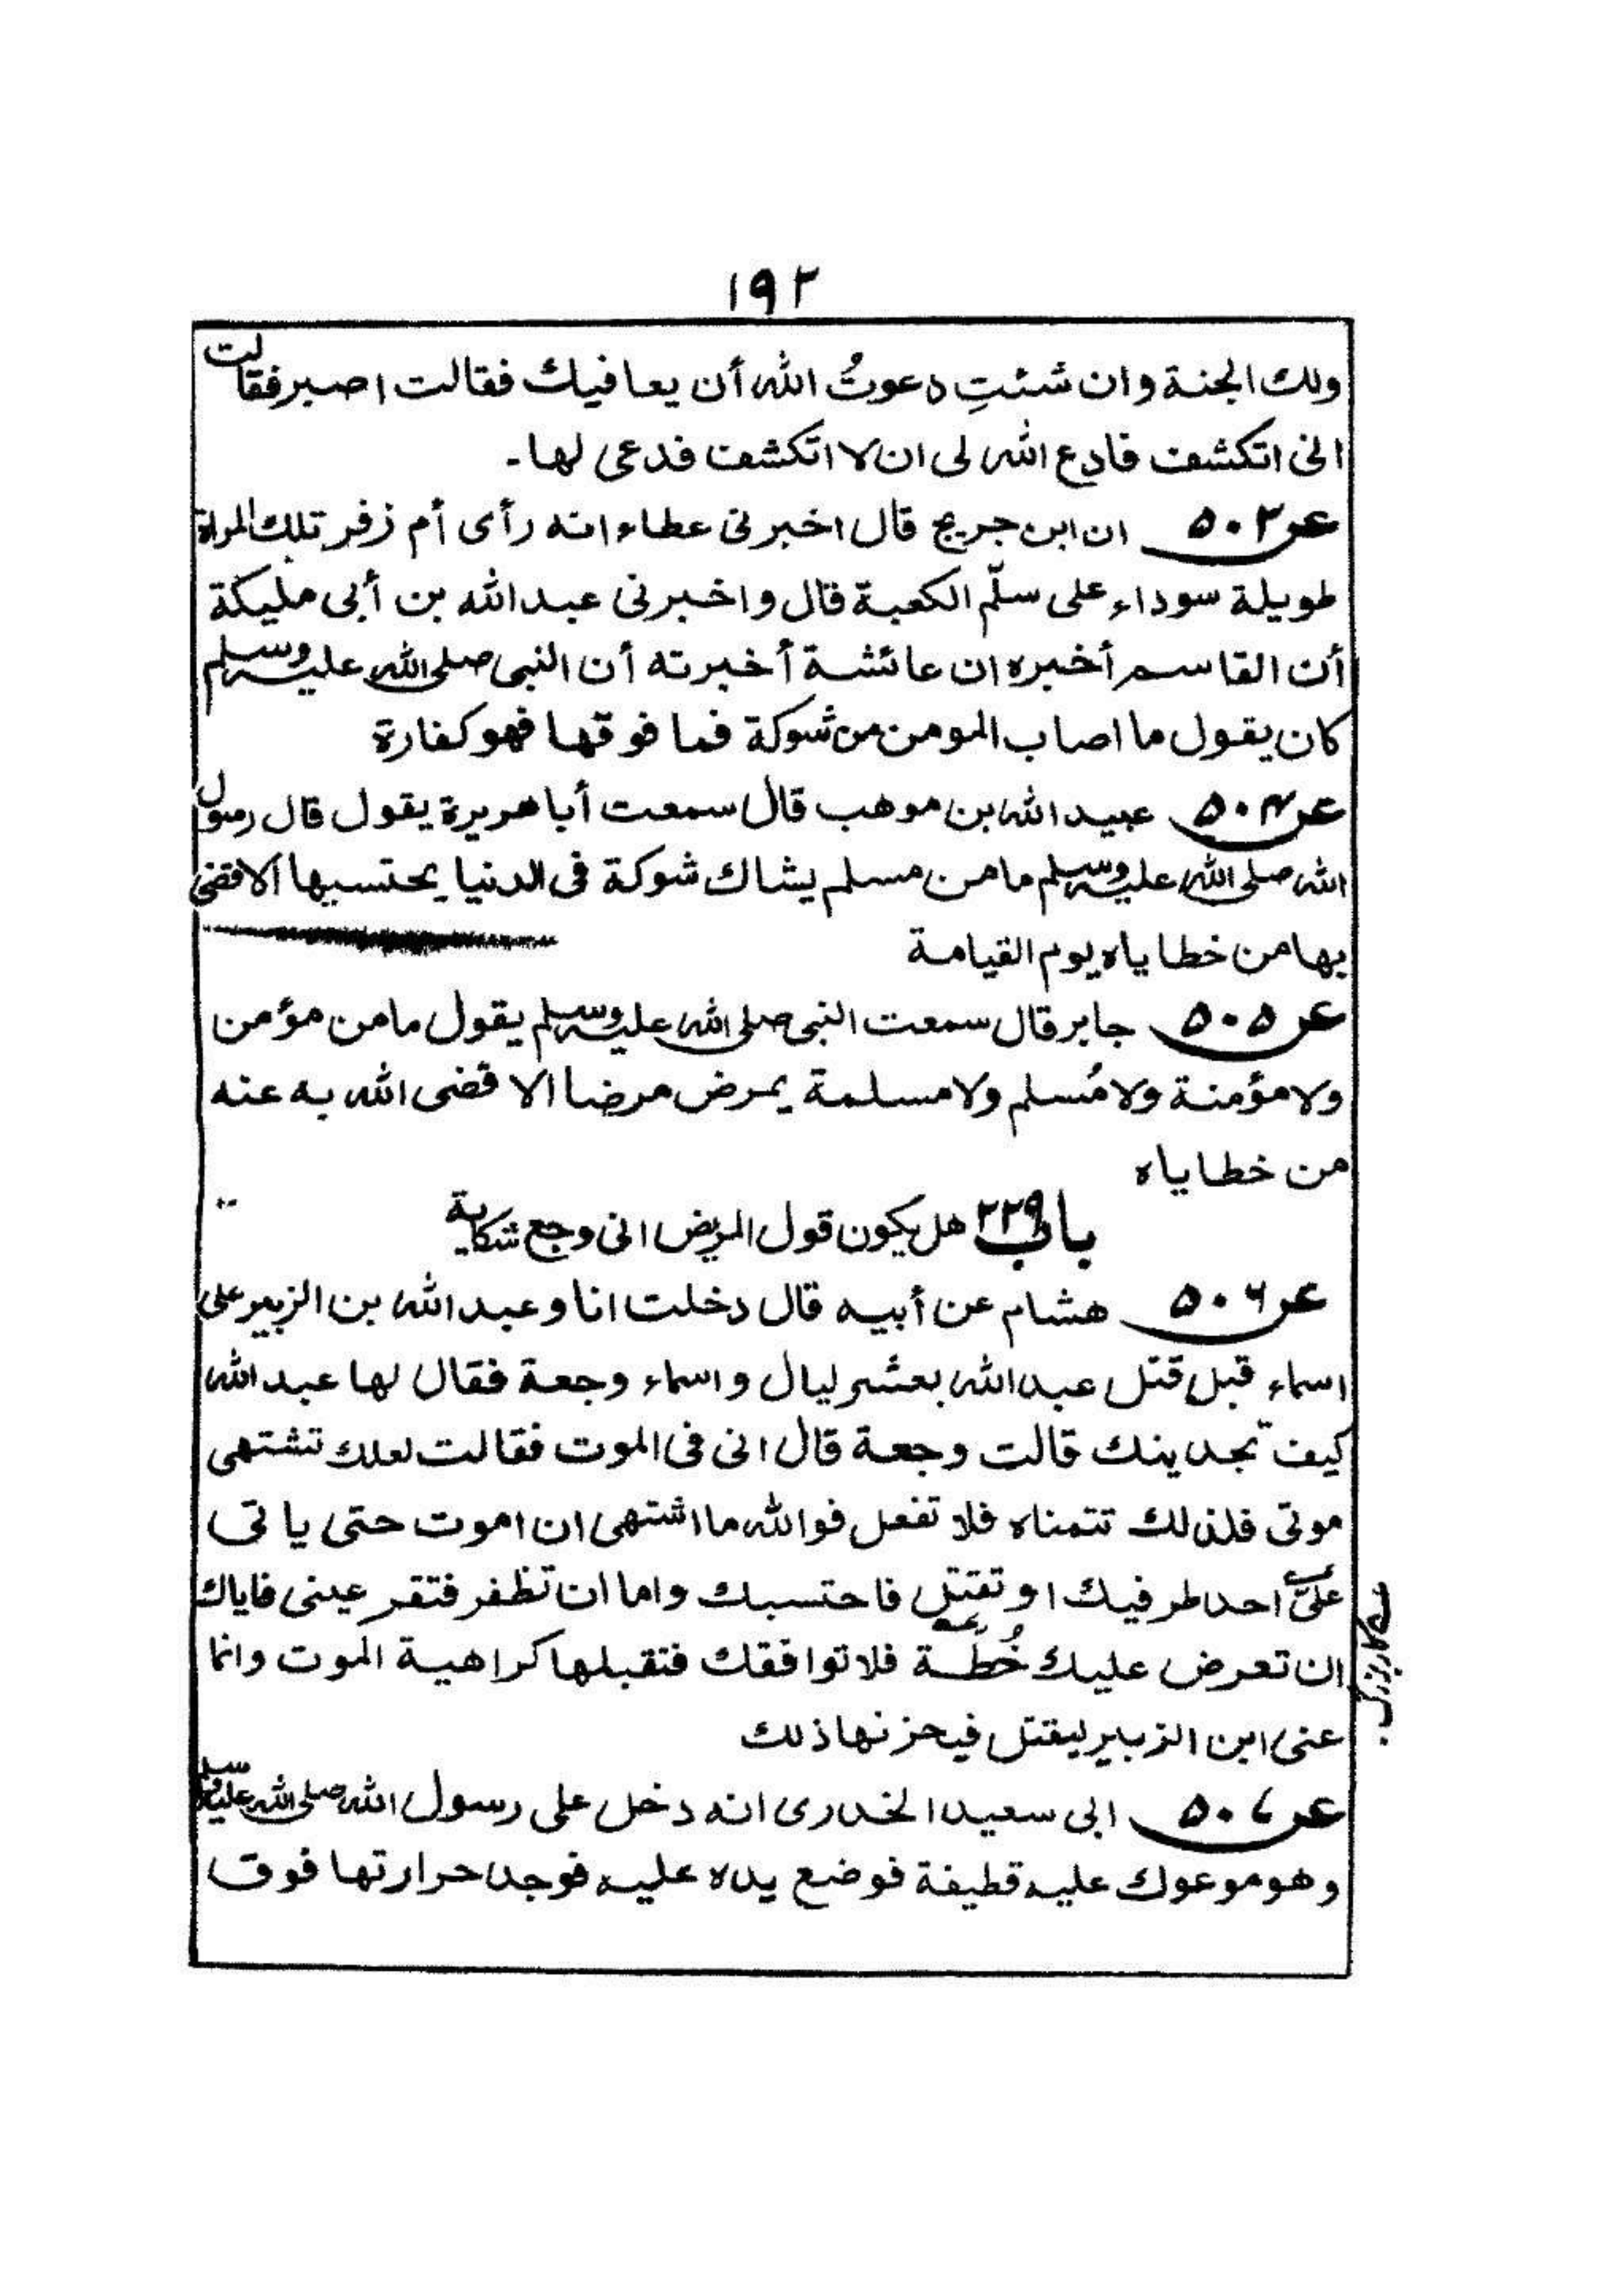 ١٩٢
ولك الجنة وان شئتِ دعوتُ الله أن يعافيك فقالت اصبر فقالت
انى اتكشف فادع الله لى ان لا اتكشف فدعى لها۔
عن ٥٠٣ ان ابن جريج قال اخبرنى عطاء انه رأى أم زفر تلك المراة
طويلة سوداء على سلّم الكعبة قال واخبرنى عبد الله بن أبى مليكة
أن القاسم أخبره ان عائشة أخبرته أن النبى صلى الله عليه وسلم
كان يقول ما اصاب المومن من شوكة فما فوقها فهو كفارة
عن ٥٠٤ عبيد الله بن موهب قال سمعت أبا هريرة يقول قال رسول
الله صلى الله عليه وسلم ما من مسلم يشاك شوكة فى الدنيا يحتسبها الا قضى
بها من خطاياه يوم القيامة
عن ٥٠٥ جابر قال سمعت النبى صلى الله عليه وسلم يقول ما من مؤمن
ولا مؤمنة ولا مُسلم ولا مسلمة يمرض مرضا الا قضى الله به عنه
من خطاياه
باب ٢٢٩ هل يكون قول المريض انى وجع شكاية
عن ٥٠٦ هشام عن أبيه قال دخلت انا وعبد الله بن الزبير على
اسماء قبل قتل عبد الله بعشر ليال واسماء وجعة فقال لها عبد الله
كيف تجدينك قالت وجعة قال انى فى الموت فقالت لعلك تشتهى
موتى فلذلك تتمناه فلا تفعل فوالله ما اشتهى ان اموت حتى ياتى
علىَّ احد طرفيك او تقتل فاحتسبك واما ان تظفر فتقر عينى فاياك
ان تعرض عليك خُطَّة فلا توافقك فتقبلها كراهية الموت وانما
عنى ابن الزبير ليقتل فيحزنها ذلك
عن ٥٠٧ ابى سعيد الخدرى انه دخل على رسول الله صلى الله عليه وسلم
وهو موعوك عليه قطيفة فوضع يده عليه فوجد حرارتها فوق